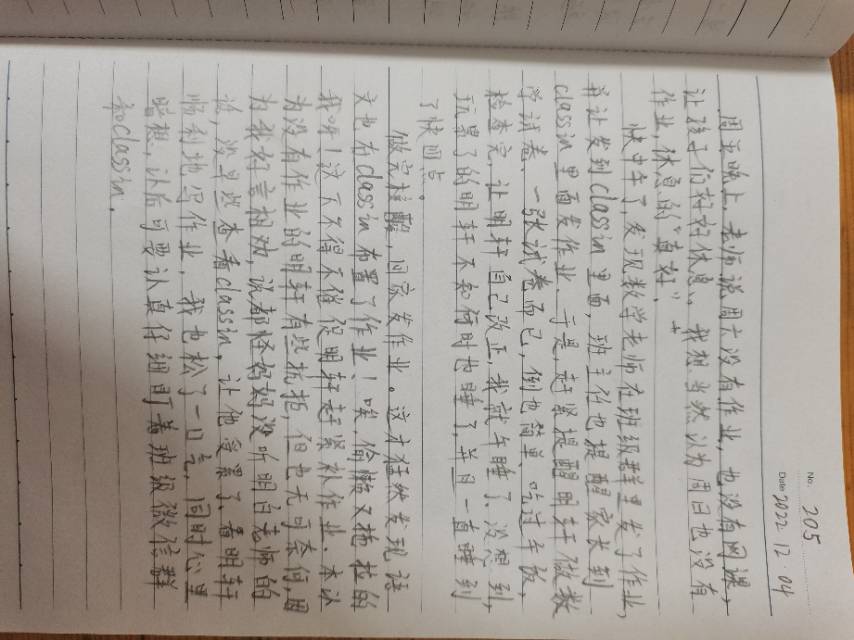 No. 205
Date 2022.12.04
周五晚上,老师说周六没有作业,也没有网课,
让孩子们好好休息、我想当然认为周日也没有
作业,休息的“真好”。
快中午了,发现数学老师在班级群里发了作业,
并让发到classin里面,班主任也提醒家长到
classin里面发作业、于是赶紧提醒明轩做数
学试卷、一张试卷而已,倒也简单、吃过午饭,
检查完,让明轩自己改正,我就午睡了、没想到,
玩累了的明轩不知何时也睡了,并且一直睡到
了快四点。
做完核酸,回家发作业。这才猛然发现语
文也在classin布置了作业!唉,偷懒又拖拉的
我呀!这下不得不催促明轩赶紧补作业、本以
为没有作业的明轩有些抗拒,但也无可奈何,因
为我好言相劝,说都怪妈妈没听明白老师的
话,没早些查看classin,让他受累了、看明轩
顺利地写作业,我也松了一口气,同时心里
暗想,以后可要认真仔细盯着班级微信群
和classin.